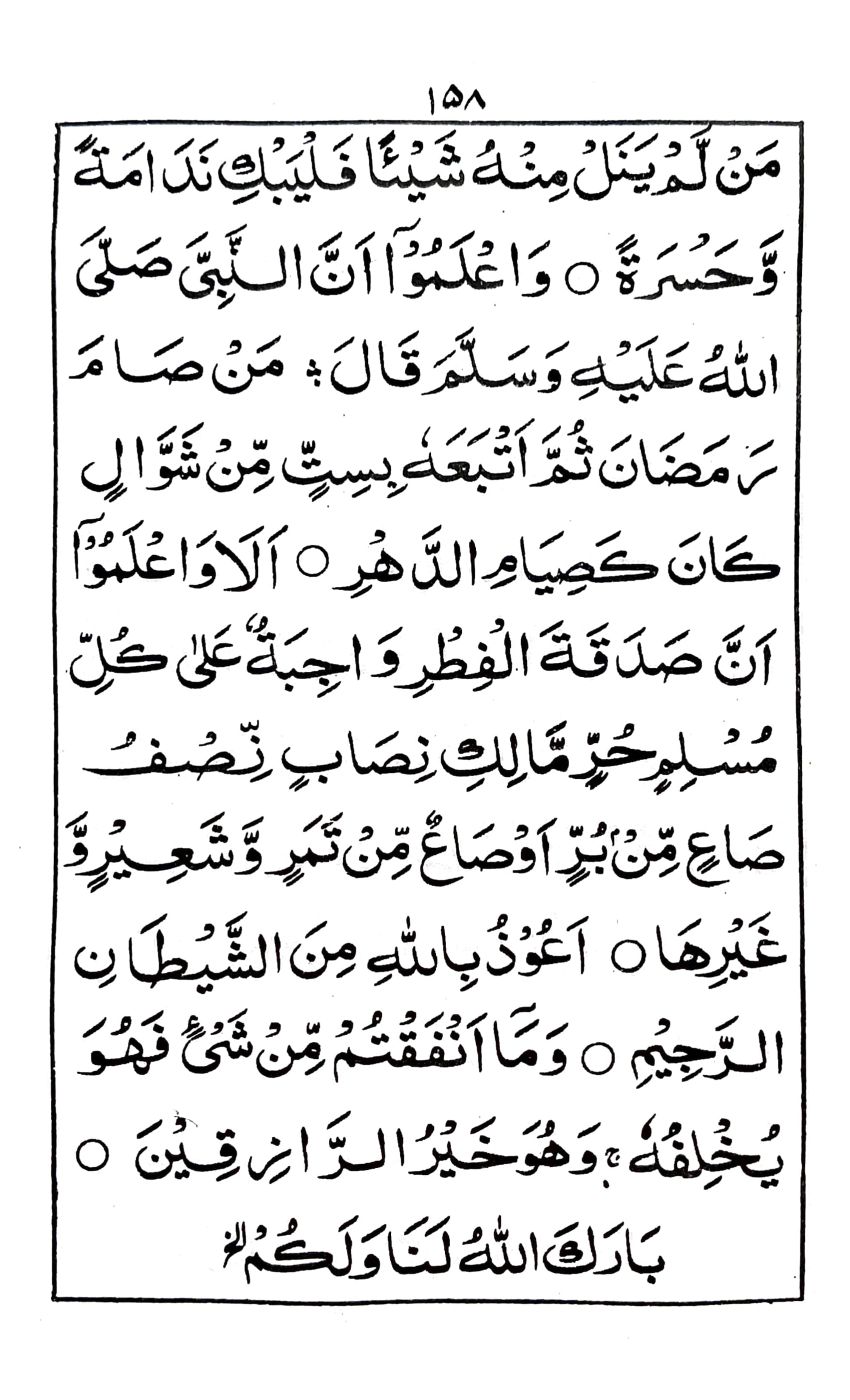 ۱۵۸
مَنْ لَّمْ يَنَلْ مِنْهُ شَيْئًا فَلْيَبْكِ نَدَامَةً
وَّحَسْرَةً ○ وَاعْلَمُوْٓا اَنَّ النَّبِىَّ صَلَّى
اللهُ عَلَيْهِ وَسَلَّمَ قَالَ ؛ مَنْ صَامَ
رَمَضَانَ ثُمَّ اَتْبَعَهٗ بِسِتٍّ مِّنْ شَوَّالٍ
كَانَ كَصِيَامِ الدَّهْرِ ○ اَلَا وَاعْلَمُوْٓا
اَنَّ صَدَقَةَ الْفِطْرِ وَاجِبَةٌ عَلٰى كُلِّ
مُسْلِمٍ حُرٍّ مَّالِكِ نِصَابٍ نِّصْفُ
صَاعٍ مِّنْۢ بُرٍّ اَوْصَاعٌ مِّنْ تَمَرٍ وَّشَعِيْرٍ وَّ
غَيْرِهَا ○ اَعُوْذُ بِاللهِ مِنَ الشَّيْطَانِ
الرَّجِيْمِ ○ وَمَآ اَنْفَقْتُمْ مِّنْ شَىْءٍ فَهُوَ
يُخْلِفُهٗ ج وَهُوَ خَيْرُ الرَّازِقِيْنَ ○
بَارَكَ اللهُ لَنَا وَلَكُمْ الخ